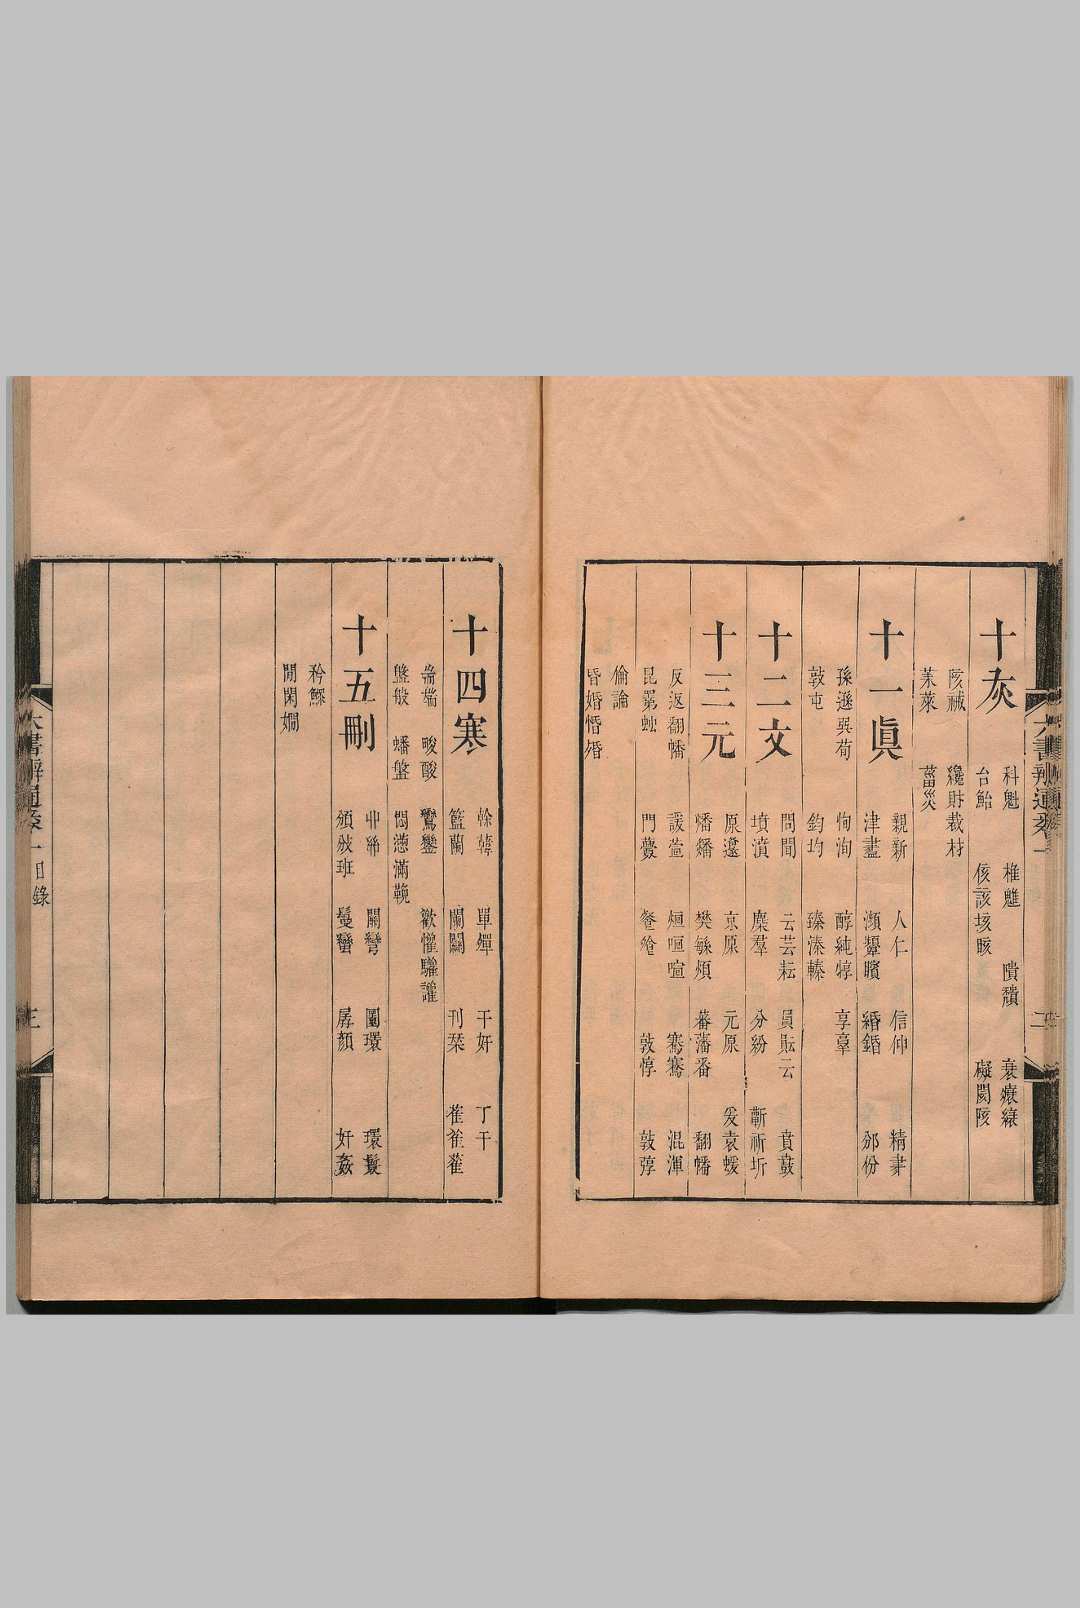 六書辨通卷一 二
十灰
科魁 椎魋 隤穨 衰縗縗
台鮐 侅該垓晐 礙閡陔
陔祴 纔財裁材
萊萊 葘災
十一眞
親新 人仁 信伸 精
津𦘔 瀕顰矉 緡錉 邠份
孫遜巽荀 恂洵 醇純惇 享辜
敦屯 鈞均 臻溱轃
十二文
問聞 云芸耘 員貟云 賁鼖
墳濆 麇羣 分紛 斷祈圻
十三元
原邍 京原 元原 爰袁蝯
燔膰 樊緐煩 蕃藩番 翻幡
反返翻幡 諼萱 烜咺喧 騫鶱 混渾
昆䍖蚰 門虋 飧 敦惇 敦弴
倫論
昏婚惛殙
十四寒
榦韓 單殫 干奸 丁干
籃蘭 闌闌 刊栞 萑雈
耑端 畯酸 鸞鑾 歡懽驩讙
盤般 蟠盤 悶懣滿鞔
十五刪
丱 關彎 圜環 環鬟
頒班 蠻 孱顏 奸姦
矜鰥
閒閑嫺
六書辨通卷一目錄 三